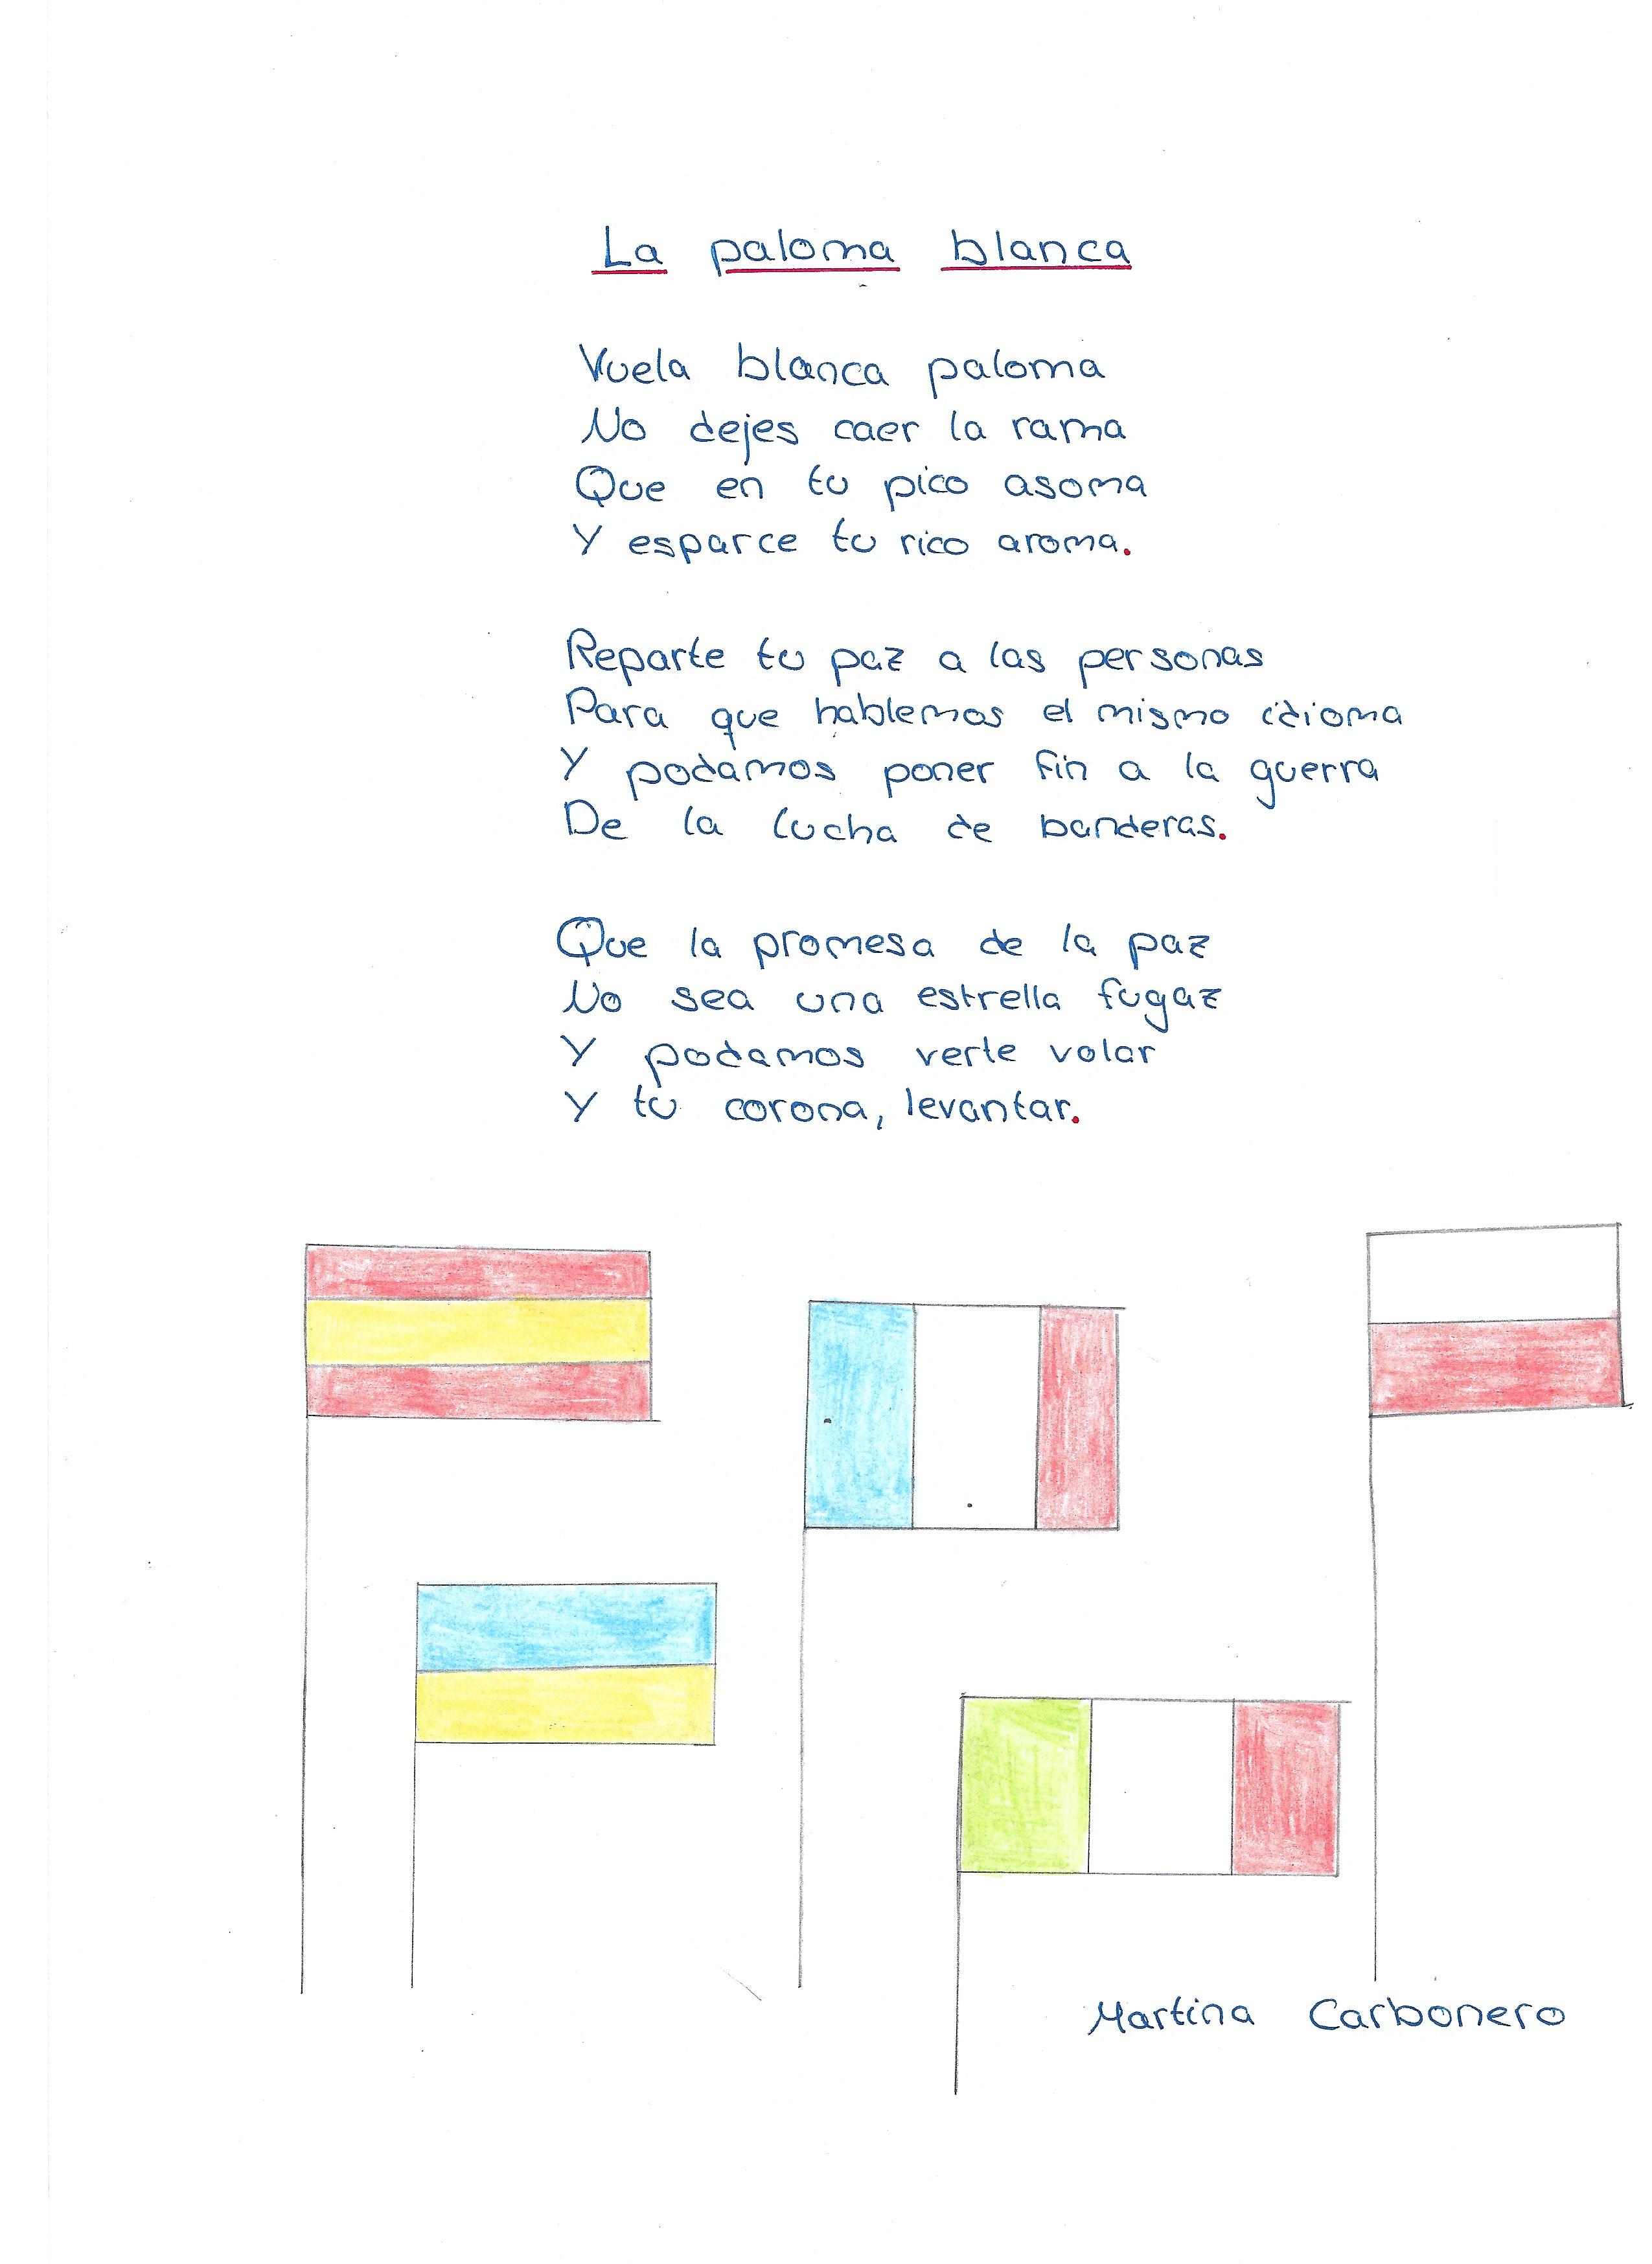 La paloma blanca
Vuela blanca paloma
No dejes caer la rama
Que en tu pico asoma
Y esparce tu rico aroma.
Reparte tu paz a las personas
Para que hablemos el mismo idioma
Y podamos poner fin a la guerra
De la lucha de banderas.
Que la promesa de la paz
No sea una estrella fugaz
Y podamos verte volar
Y tu corona, levantar.
Martina Carbonero